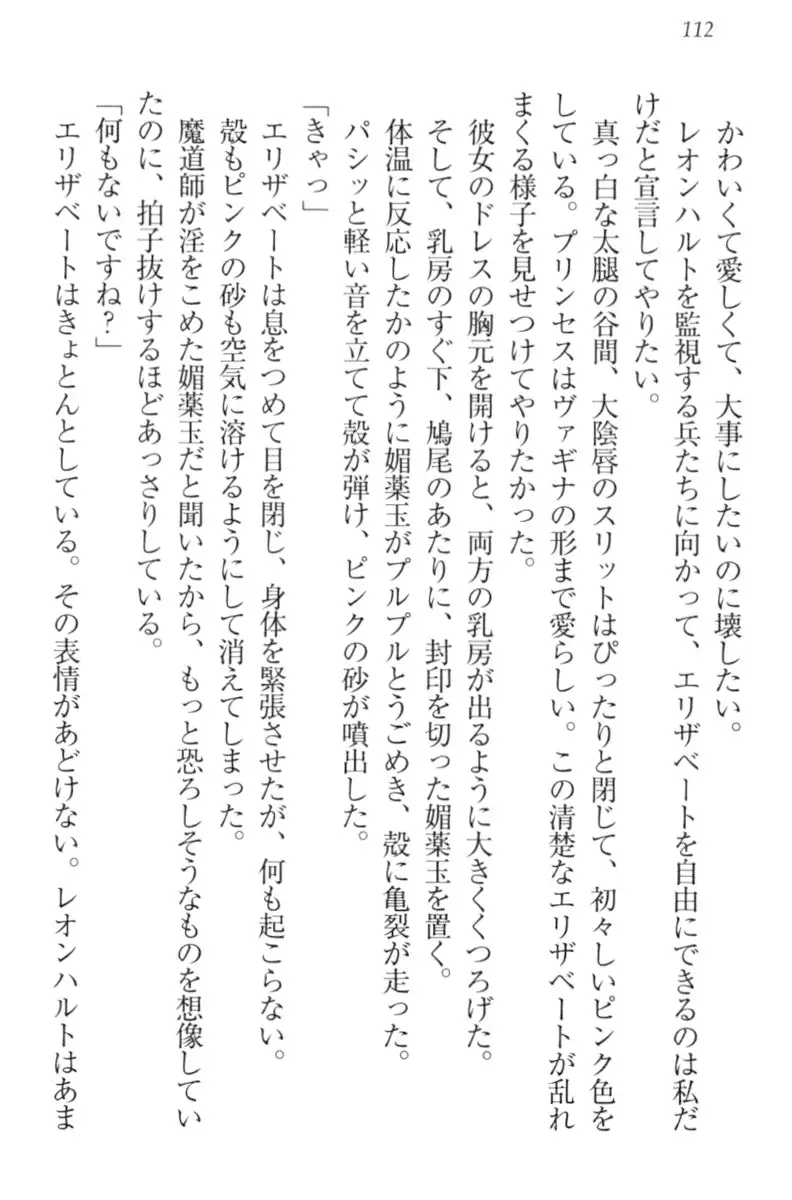 112
かわいくて愛しくて、大事にしたいのに壊したい。
レオンハルトを監視する兵たちに向かって、エリザベートを自由にできるのは私だ
けだと宣言してやりたい。
真っ白な太腿の谷間、大陰唇のスリットはぴったりと閉じて、初々しいピンク色を
している。プリンセスはヴァギナの形まで愛らしい。この清楚なエリザベートが乱れ
まくる様子を見せつけてやりたかった。
彼女のドレスの胸元を開けると、両方の乳房が出るように大きくくつろげた。
そして、乳房のすぐ下、鳩尾のあたりに、封印を切った媚薬玉を置く。
体温に反応したかのように媚薬玉がプルプルとうごめき、殻に亀裂が走った。
パシッと軽い音を立てて殻が弾け、ピンクの砂が噴出した。
「きゃっ」
エリザベートは息をつめて目を閉じ、身体を緊張させたが、何も起こらない。
殻もピンクの砂も空気に溶けるようにして消えてしまった。
魔道師が淫をこめた媚薬玉だと聞いたから、もっと恐ろしそうなものを想像してい
たのに、拍子抜けするほどあっさりしている。
「何もないですね？」
エリザベートはきょとんとしている。その表情があどけない。レオンハルトはあま